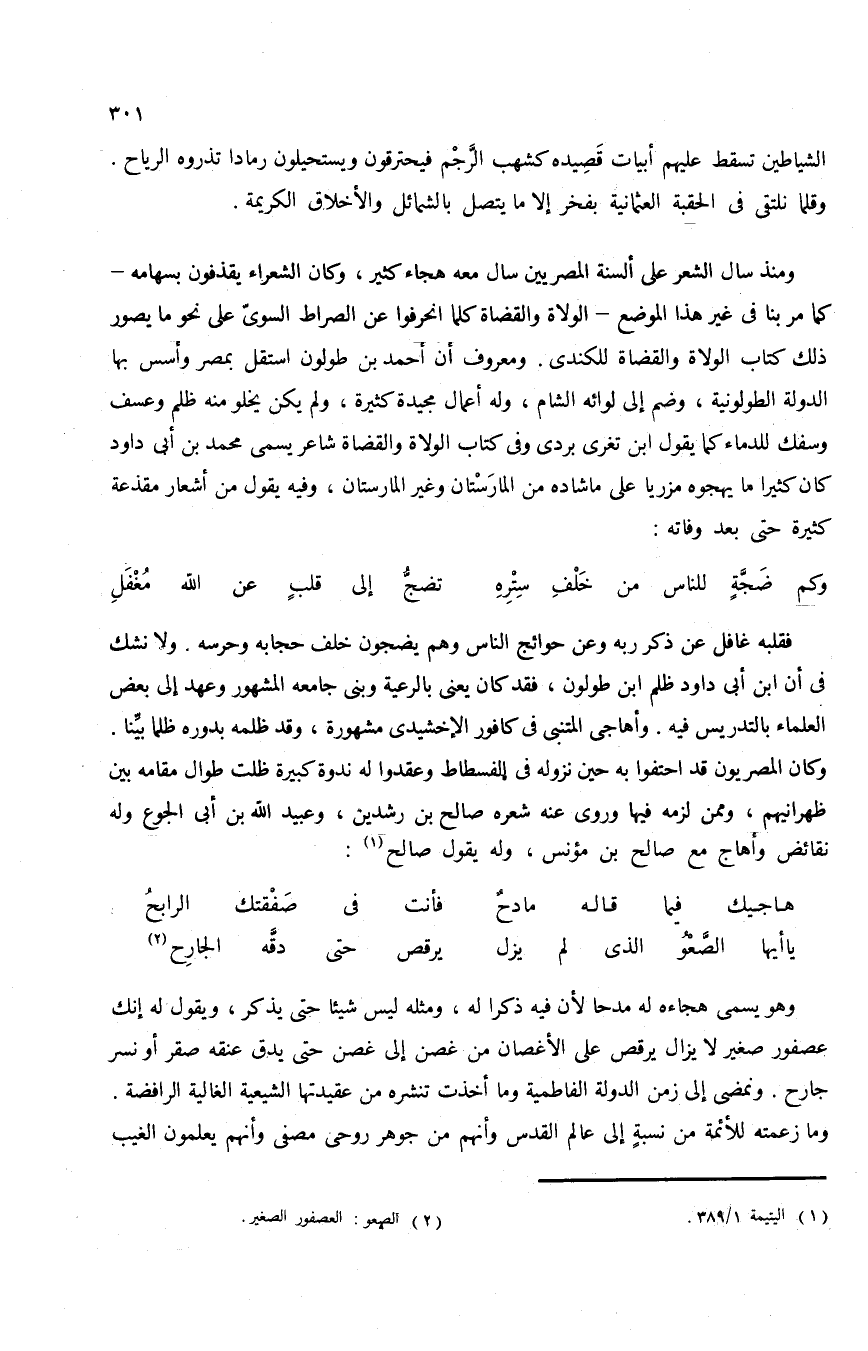 ٣٠١
الشياطين تسقط عليهم أبيات قَصِيده كشهب الرَّجْم فيحترقون ويستحيلون رمادا تذروه الرياح .
وقلما نلتقى فى الحقبة العثمانية بفخر إلا ما يتصل بالشمائل والأخلاق الكريمة .
ومنذ سال الشعر على ألسنة المصريين سال معه هجاء كثير ، وكان الشعراء يقذفون بسهامه –
كما مر بنا فى غير هذا الموضع – الولاة والقضاة كلما انحرفوا عن الصراط السوىّ على نحو ما يصور
ذلك كتاب الولاة والقضاة للكندى . ومعروف أن أحمد بن طولون استقل بمصر وأسس بها
الدولة الطولونية ، وضم إلى لوائه الشام ، وله أعمال مجيدة كثيرة ، ولم يكن يخلو منه ظلم وعسف
وسفك للدماء كما يقول ابن تغرى بردى وفى كتاب الولاة والقضاة شاعر يسمى محمد بن أبى داود
كان كثيرا ما يهجوه مزريا على ماشاده من المارَسْتان وغير المارستان ، وفيه يقول من أشعار مقذعة
كثيرة حتى بعد وفاته :
وكم ضَجَّةٍ للناس من خَلْفِ سِتْرِهِ تضجُّ إلى قلبٍ عن الله مُغْفَلِ
فقلبه غافل عن ذكر ربه وعن حوائج الناس وهم يضجون خلف حجابه وحرسه . ولا نشك
فى أن ابن أبى داود ظلم ابن طولون ، فقد كان يعنى بالرعية وبنى جامعه المشهور وعهد إلى بعض
العلماء بالتدريس فيه . وأهاجى المتنبى فى كافور الإخشيدى مشهورة ، وقد ظلمه بدوره ظلما بيِّنا .
وكان المصريون قد احتفوا به حين نزوله فى الفسطاط وعقدوا له ندوة كبيرة ظلت طوال مقامه بين
ظهرانيهم ، وممن لزمه فيها وروى عنه شعره صالح بن رشدين ، وعبيد الله بن أبى الجوع وله
نقائض وأهاج مع صالح بن مؤنس ، وله يقول صالح(١) :
هاجيك فيما قاله مادحٌ فأنت فى صَفْقتك الرابحُ
ياأيها الصَّعْوُ الذى لم يزل يرقص حتى دقَّه الجارِح(٢)
وهو يسمى هجاءه له مدحا لأن فيه ذكرا له ، ومثله ليس شيئا حتى يذكر ، ويقول له إنك
عصفور صغير لا يزال يرقص على الأغصان من غصن إلى غصن حتى يدق عنقه صقر أو نسر
جارح . ونمضى إلى زمن الدولة الفاطمية وما أخذت تنشره من عقيدتها الشيعية الغالية الرافضة .
وما زعمته للأئمة من نسبةٍ إلى عالم القدس وأنهم من جوهر روحى مصفى وأنهم يعلمون الغيب
(١) اليتيمة ٣٨٩/١ . (٢) الصعو : العصفور الصغير .